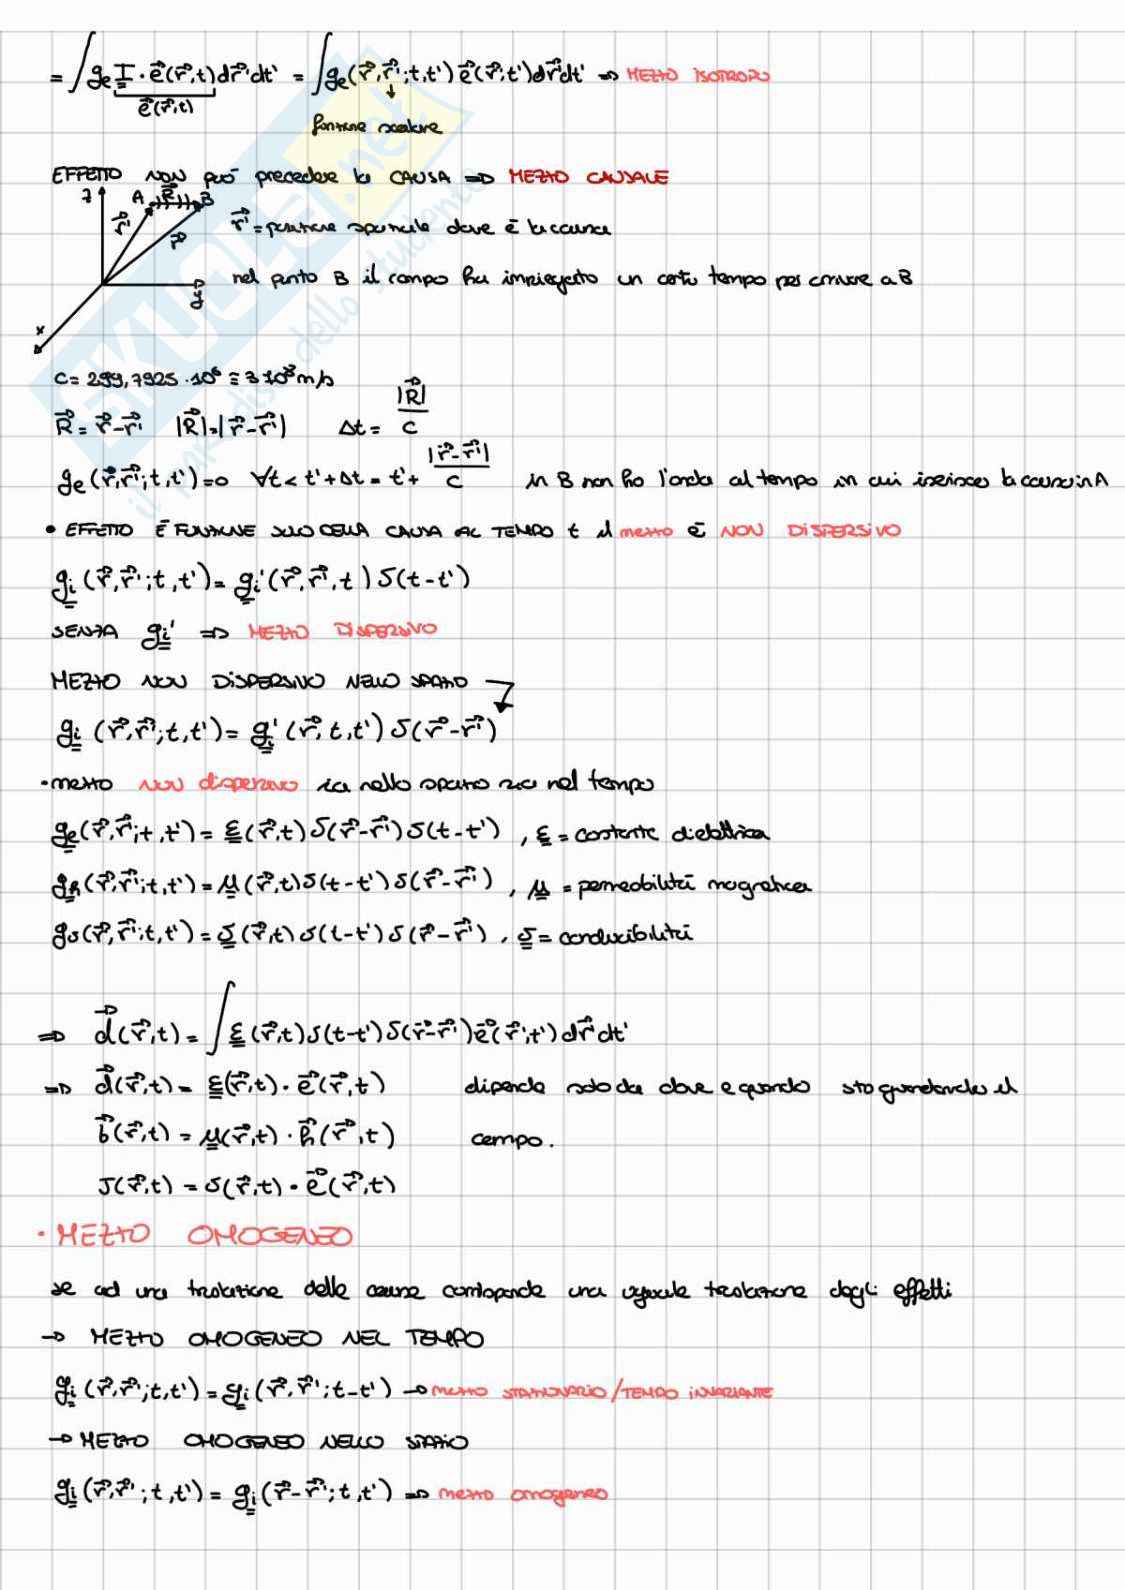 = ∫ g̲e I̲ · e⃗(r⃗,t) dr⃗' dt' = ∫ ge(r⃗,r⃗';t,t') e⃗(r⃗',t') dr⃗' dt' ⇒ MEZZO ISOTROPO
e⃗(r⃗,t)
funzione scalare
EFFETTO NON può precedere la CAUSA ⇒ MEZZO CAUSALE
z A R⃗ B
r⃗' r⃗
r⃗' = posizione spaziale dove è la causa
nel punto B il campo ha impiegato un certo tempo per arrivare a B
y
x
c = 299,7925 · 10⁶ ≅ 3 10⁸ m/s
R⃗ = r⃗-r⃗' |R⃗| = |r⃗-r⃗'| Δt = |R⃗|/c
ge(r⃗,r⃗';t,t') = 0 ∀t < t'+Δt = t' + |r⃗-r⃗'|/c in B non ho l'onda al tempo in cui inserisco la causa in A
• EFFETTO È FUNZIONE SOLO DELLA CAUSA AL TEMPO t il mezzo è NON DISPERSIVO
g̲i(r⃗,r⃗';t,t') = g̲i'(r⃗,r⃗',t) δ(t-t')
SENZA g̲i' ⇒ MEZZO DISPERSIVO
MEZZO NON DISPERSIVO NELLO SPAZIO
g̲i(r⃗,r⃗';t,t') = g̲i'(r⃗,t,t') δ(r⃗-r⃗')
• mezzo non dispersivo sia nello spazio sia nel tempo
g̲e(r⃗,r⃗';t,t') = ε̲(r⃗,t) δ(r⃗-r⃗') δ(t-t') , ε̲ = costante dielettrica
g̲h(r⃗,r⃗';t,t') = μ̲(r⃗,t) δ(t-t') δ(r⃗-r⃗') , μ̲ = permeabilità magnetica
gσ(r⃗,r⃗';t,t') = σ̲(r⃗,t) δ(t-t') δ(r⃗-r⃗') , σ̲ = conducibilità
⇒ d⃗(r⃗,t) = ∫ ε̲(r⃗,t) δ(t-t') δ(r⃗-r⃗') e⃗(r⃗',t') dr⃗' dt'
⇒ d⃗(r⃗,t) = ε̲(r⃗,t) · e⃗(r⃗,t) dipende solo da dove e quando sto guardando il
b⃗(r⃗,t) = μ̲(r⃗,t) · h⃗(r⃗,t) campo.
J(r⃗,t) = σ(r⃗,t) · e⃗(r⃗,t)
• MEZZO OMOGENEO
se ad una traslazione delle cause corrisponde una uguale traslazione degli effetti
→ MEZZO OMOGENEO NEL TEMPO
g̲i(r⃗,r⃗';t,t') = g̲i(r⃗,r⃗';t-t') → mezzo STAZIONARIO/TEMPO INVARIANTE
→ MEZZO OMOGENEO NELLO SPAZIO
g̲i(r⃗,r⃗';t,t') = g̲i(r⃗-r⃗';t,t') ⇒ mezzo omogeneo
SKUOLA.net